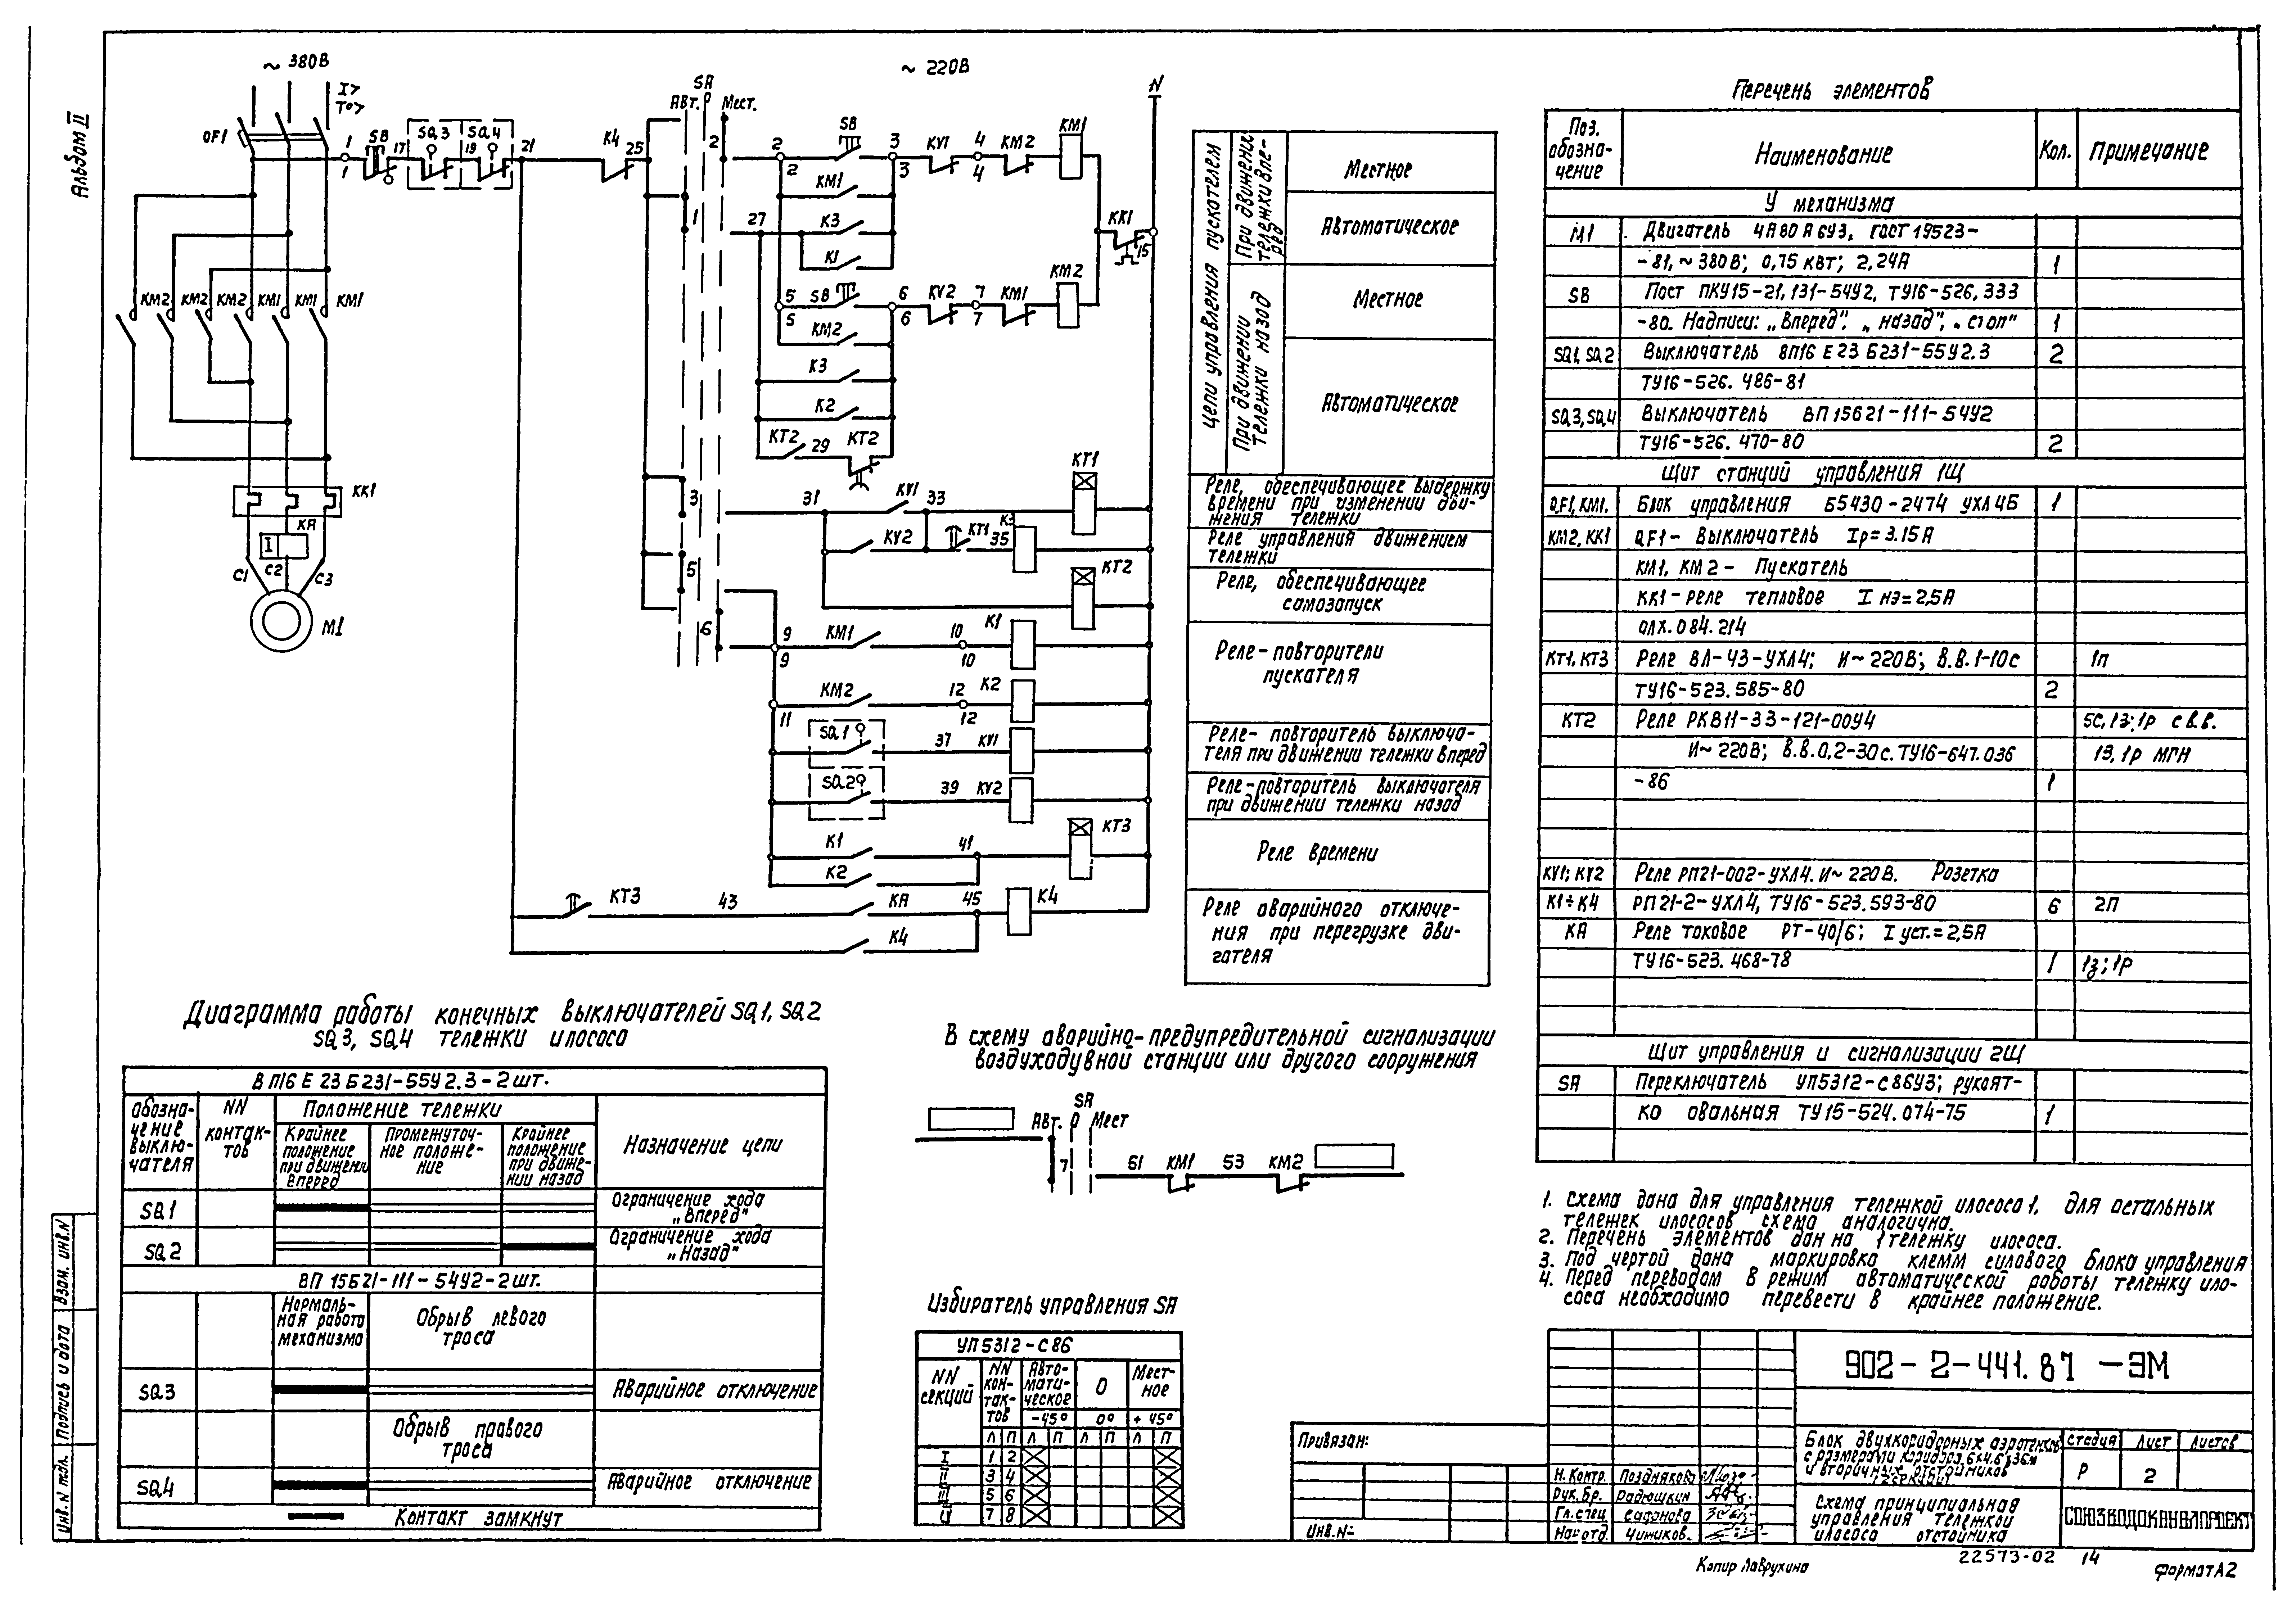 Альбом II
~ 380В
I>
T°>
QF1
1
1
SB
17
SQ3
19
SQ4
21
K4
25
SA
Авт. 0 Мест.
~ 220В
N
2
1
3
5
6
2
2
SB
3
3
KV1
4
4
KM2
KM1
KM1
27
K3
K1
KK1
15
5
5
SB
6
6
KV2
7
7
KM1
KM2
KM2
K3
K2
KT2
29
KT2
KM2 KM2 KM2 KM1 KM1 KM1
KK1
KA
I
C1
C2
C3
M1
31
KV1
33
KT1
KV2
KT1
35
K3
KT2
9
9
KM1
10
10
K1
11
KM2
12
12
K2
SQ1
37
KV1
SQ2
39
KV2
K1
41
KT3
K2
KT3
43
KA
45
K4
K4
Цепи управления пускателем
При движении тележки вперед
Местное
Автоматическое
При движении тележки назад
Местное
Автоматическое
Реле, обеспечивающее выдержку
времени при изменении дви-
жения тележки
Реле управления движением
тележки
Реле, обеспечивающее
самозапуск
Реле-повторители
пускателя
Реле-повторитель выключа-
теля при движении тележки вперед
Реле-повторитель выключателя
при движении тележки назад
Реле времени
Реле аварийного отключе-
ния при перегрузке дви-
гателя
Перечень элементов
Поз. обозна-чение
Наименование
Кол.
Примечание
У механизма
M1 Двигатель 4А80А6У3, ГОСТ 19523-
-81, ~380В; 0,75 кВт; 2,24А 1
SB Пост ПКУ15-21,131-54У2, ТУ16-526,333
-80. Надписи: „Вперед", „назад", „стоп" 1
SQ1, SQ2 Выключатель ВП16Е23Б231-55У2.3 2
ТУ16-526.486-81
SQ3, SQ4 Выключатель ВП15Б21-111-54У2
ТУ16-526.470-80 2
Щит станций управления 1Щ
QF1, KM1, Блок управления Б5430-2474 УХЛ4Б 1
KM2, KK1 QF1- Выключатель Iр=3.15А
KM1, KM2- Пускатель
KK1-реле тепловое I нэ=2,5А
ОЛХ.084.214
KT1, KT3 Реле ВЛ-43-УХЛ4; И~220В; В.В.1-10с 1п
ТУ16-523.585-80 2
KT2 Реле РКВ11-33-121-00У4 5С,1з;1р с в.в.
И~220В; В.В.0,2-30с.ТУ16-647.036 1з,1р МГН
-86 1
KV1; KV2 Реле РП21-002-УХЛ4. И~220В. Розетка
K1÷K4 РП21-2-УХЛ4, ТУ16-523.593-80 6 2П
KA Реле токовое РТ-40/6; I уст.=2,5А
ТУ16-523.468-78 1 1з;1р
Щит управления и сигнализации 2Щ
SA Переключатель УП5312-С86У3; рукоят-
ка овальная ТУ15-524.074-75 1
Диаграмма работы конечных выключателей SQ1, SQ2
SQ3, SQ4 тележки илососа
ВП16Е23Б231-55У2.3-2шт.
Обозна-чение выключ-чателя
NN контак-тов
Положение тележки
Крайнее положение при движении вперед
Промежуточ-ное положе-ние
Крайнее положение при движе-нии назад
Назначение цепи
SQ1
Ограничение хода
„Вперед"
SQ2
Ограничение хода
„Назад"
ВП15Б21-111-54У2-2шт.
Нормаль-ная работа механизма
Обрыв левого
троса
SQ3
Аварийное отключение
Обрыв правого
троса
SQ4
Аварийное отключение
Контакт замкнут
В схему аварийно-предупредительной сигнализации
воздуходувной станции или другого сооружения
SA
Авт. 0 Мест
7
51
KM1
53
KM2
Избиратель управления SA
УП5312-С86
NN секций
NN кон-так-тов
Авто-мати-ческое
0
Мест-ное
-45° 0° +45°
Л П Л П Л П Л П
I 1 2
II 3 4
III 5 6
IV 7 8
1. Схема дана для управления тележкой илососа 1, для остальных
тележек илососов схема аналогична.
2. Перечень элементов дан на 1 тележку илососа.
3. Под чертой дана маркировка клемм силового блока управления
4. Перед переводом в режим автоматической работы тележку ило-
соса необходимо перевести в крайнее положение.
902-2-441.87 -ЭМ
Привязан:
Инв.№
Н.контр. Позднякова
Рук.бр. Радюшкин
Гл.спец. Сафонова
Нач.отд. Чижиков
Блок двухкоридорных аэротенков
с размерами коридора 6х4,6х36м
и вторичных отстойников
Стадия Лист Листов
Р 2
Схема принципиальная
управления тележкой
илососа отстойника
СОЮЗВОДОКАНАЛПРОЕКТ
22573-02 14
Копир Лаврухина
Формат А2
Взам. инв.N
Подпись и дата
Инв. N подл.